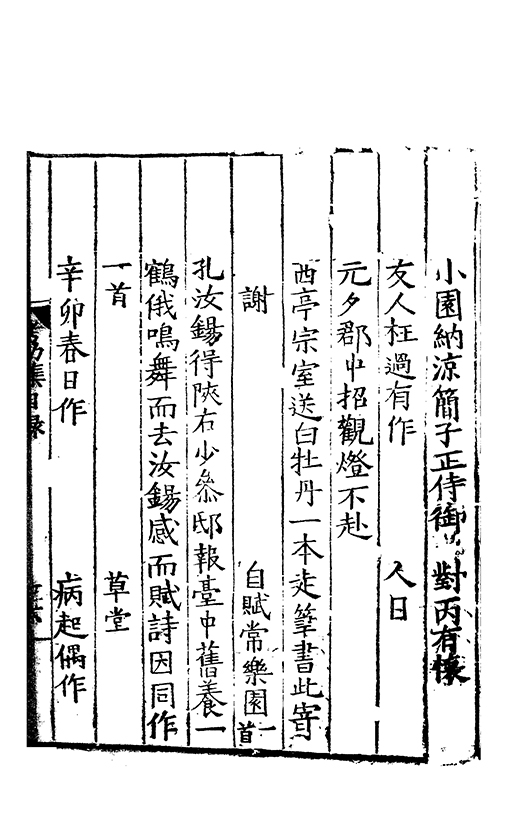 小園納涼簡子正侍御 對丙有懷
友人枉過有作 人日
元夕郡中招觀燈不赴
西亭宗室送白牡丹一本走筆書此寄
謝 自賦常樂園一首
孔汝錫得陝右少叅邸報臺中舊養一
鶴俄鳴舞而去汝錫感而賦詩因同作
一首 草堂
辛卯春日作 病起偶作
集目錄